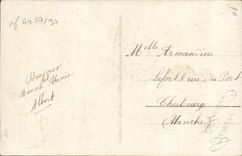 Bonjour
Bonne Année
Albert
Mlle Armandine
Lefort 8 rue du Port
Cherbourg
Manche